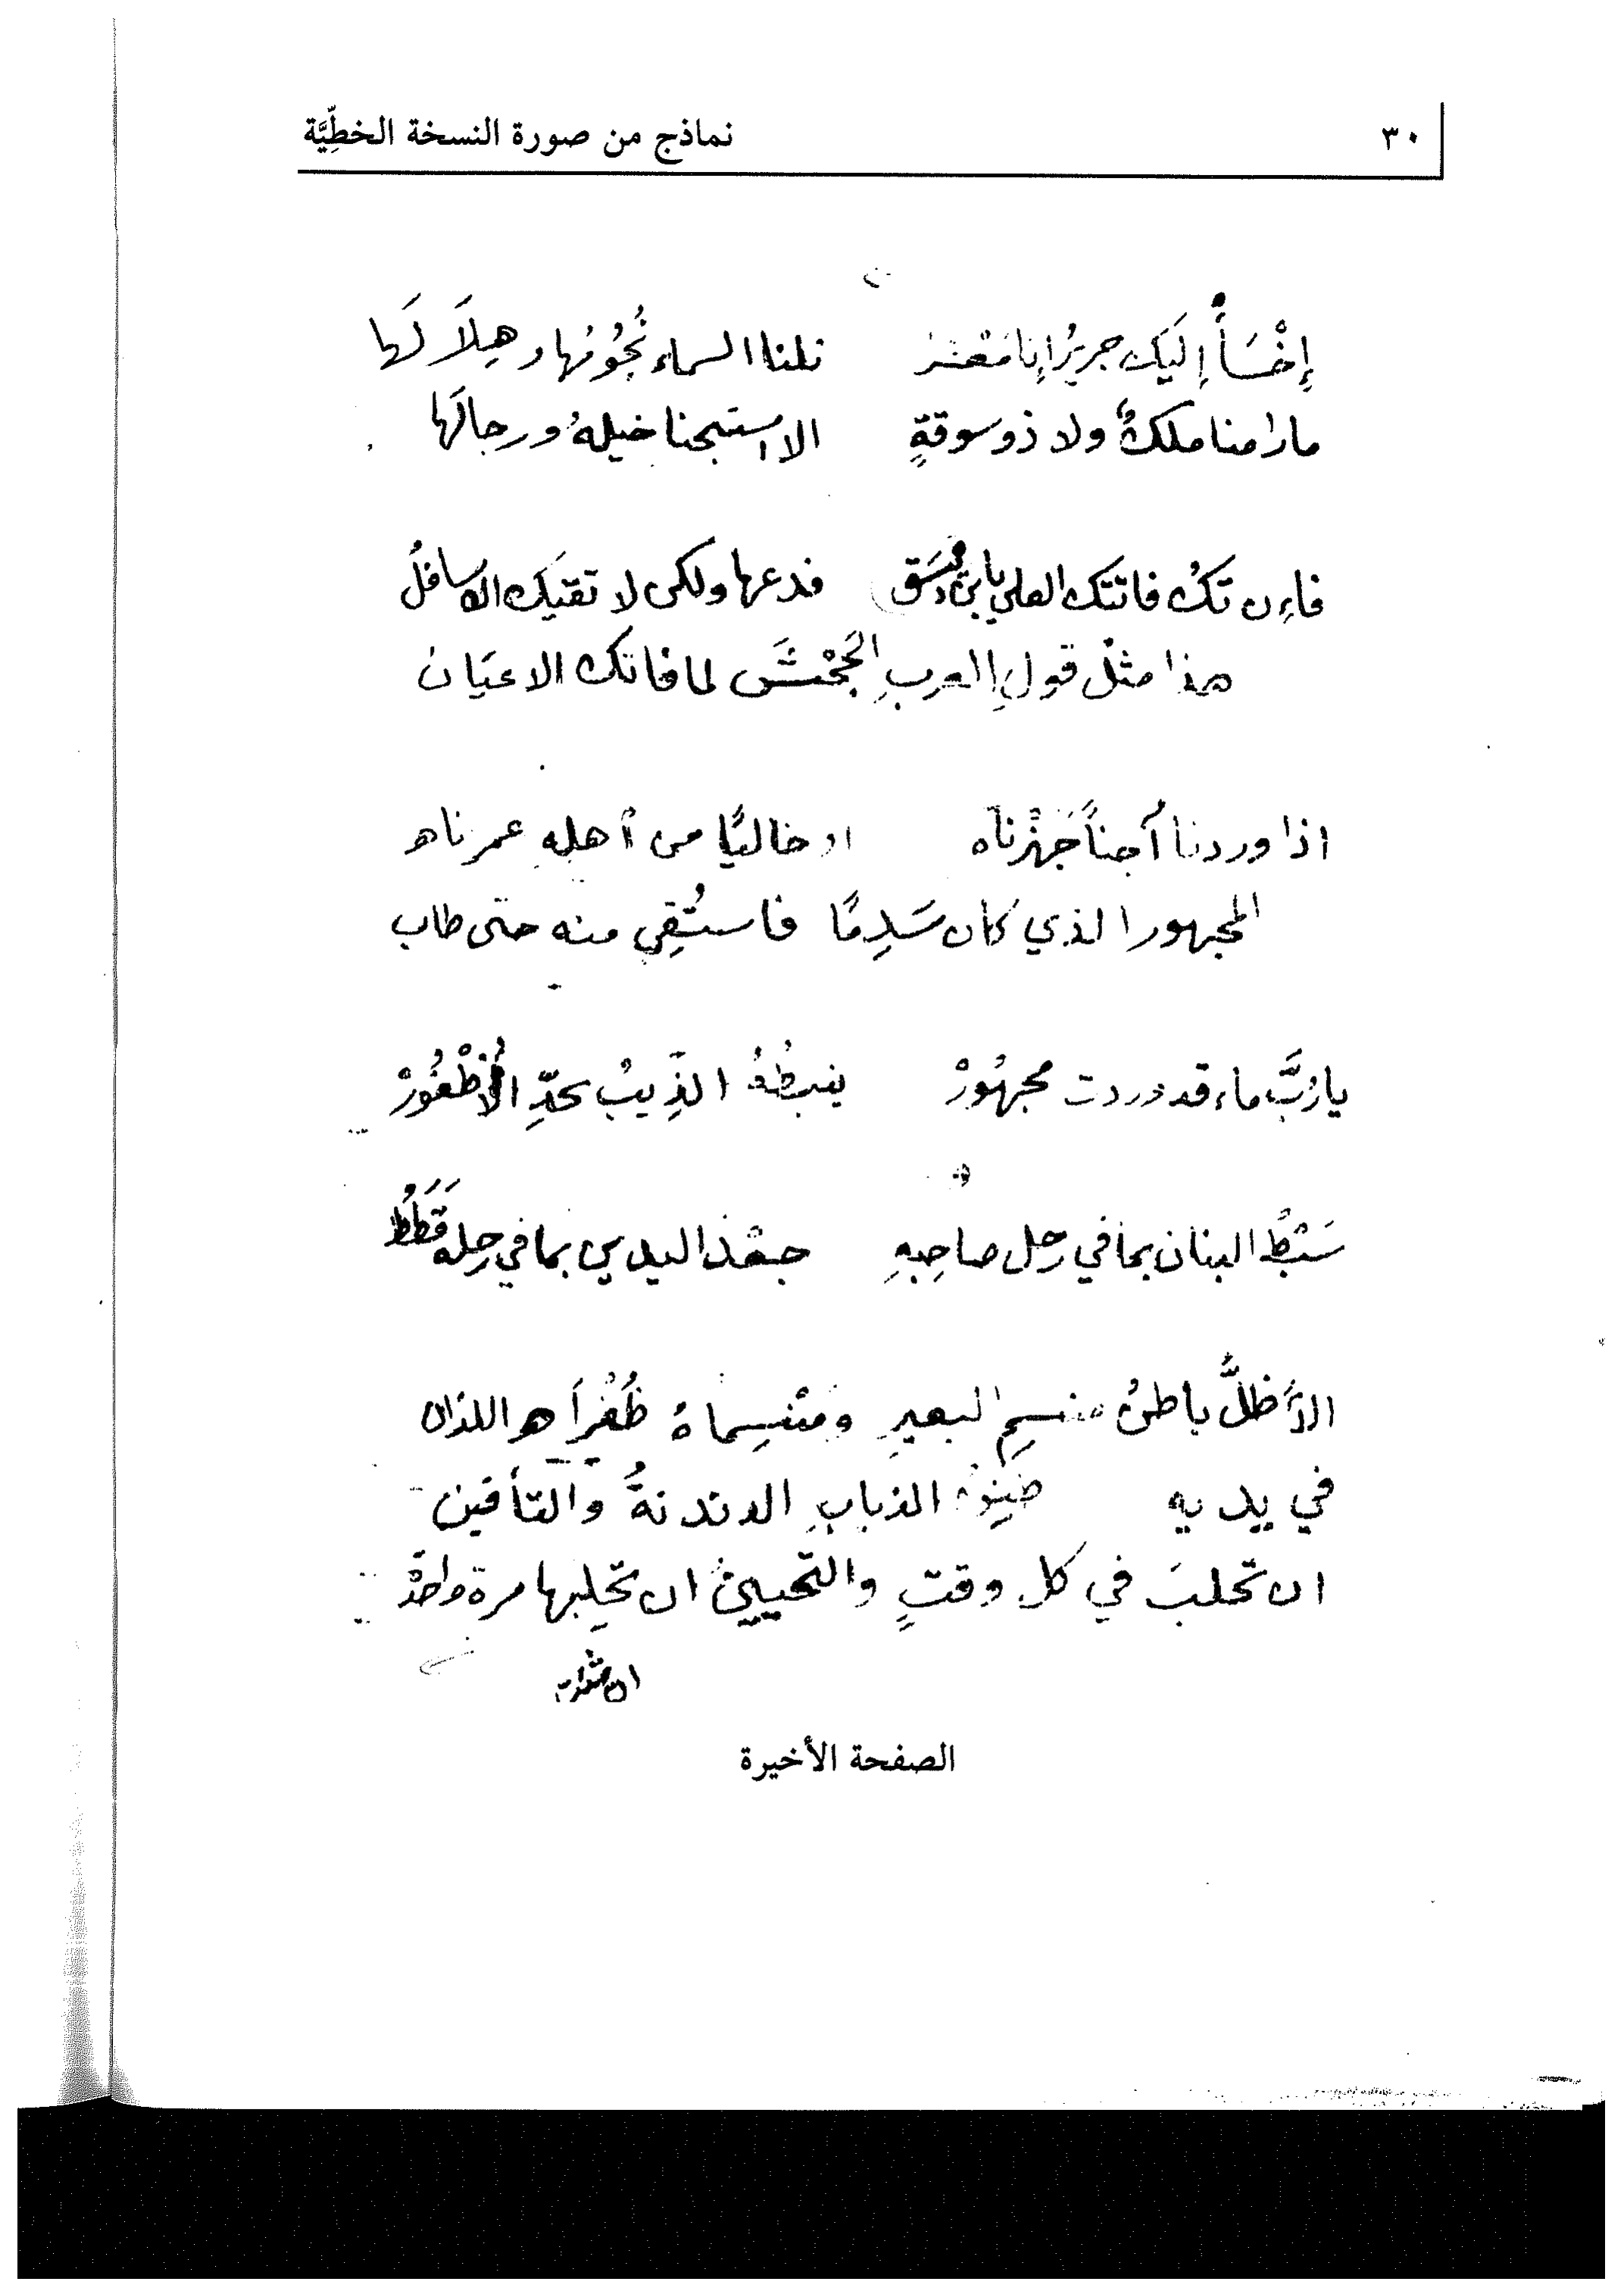 ٣٠ نماذج من صورة النسخة الخطِّيَّة
إِخْسَأْ إِلَيكَ جريرُ إنا مَعْشر نلنا السماء نُجُومَها وهِلاَلَها
مارامنا ملكٌ ولا ذو سوقةٍ الا استبحنا خيلهُ ورجالَها
فاءِن تكُ فاتتك العلى يابن فدعها ولكن لا تفتك الاسافلُ
هذا مثلُ قول العرب الجَحْشَ لما فاتك الاعيَانُ
اذا وردنا آجناً جَهَرْناه او خاليًا من أهلهِ عمرناه
المجهور الذي كان سَدِمًا فاستُقِي منه حتى طاب
يا رُبَّ ماء قد وردت مجهُورْ ينبطُهُ الذِّيبُ بحدِّ الأُظْفُورْ
سَبْطُ البنان بما في رحل صاحِبهِ جعْدُ اليدين بما في رحله قَطَطُ
الأَظلُّ باطنُ منسِمِ البعيرِ ومَنْسِماهُ ظُفْراه اللذان
في يديه الذبابِ الدندنةُ والتأفين
ان تحلبَ في كل وقتٍ والتحيينُ ان تحلِبها مرة واحدة
الصفحة الأخيرة